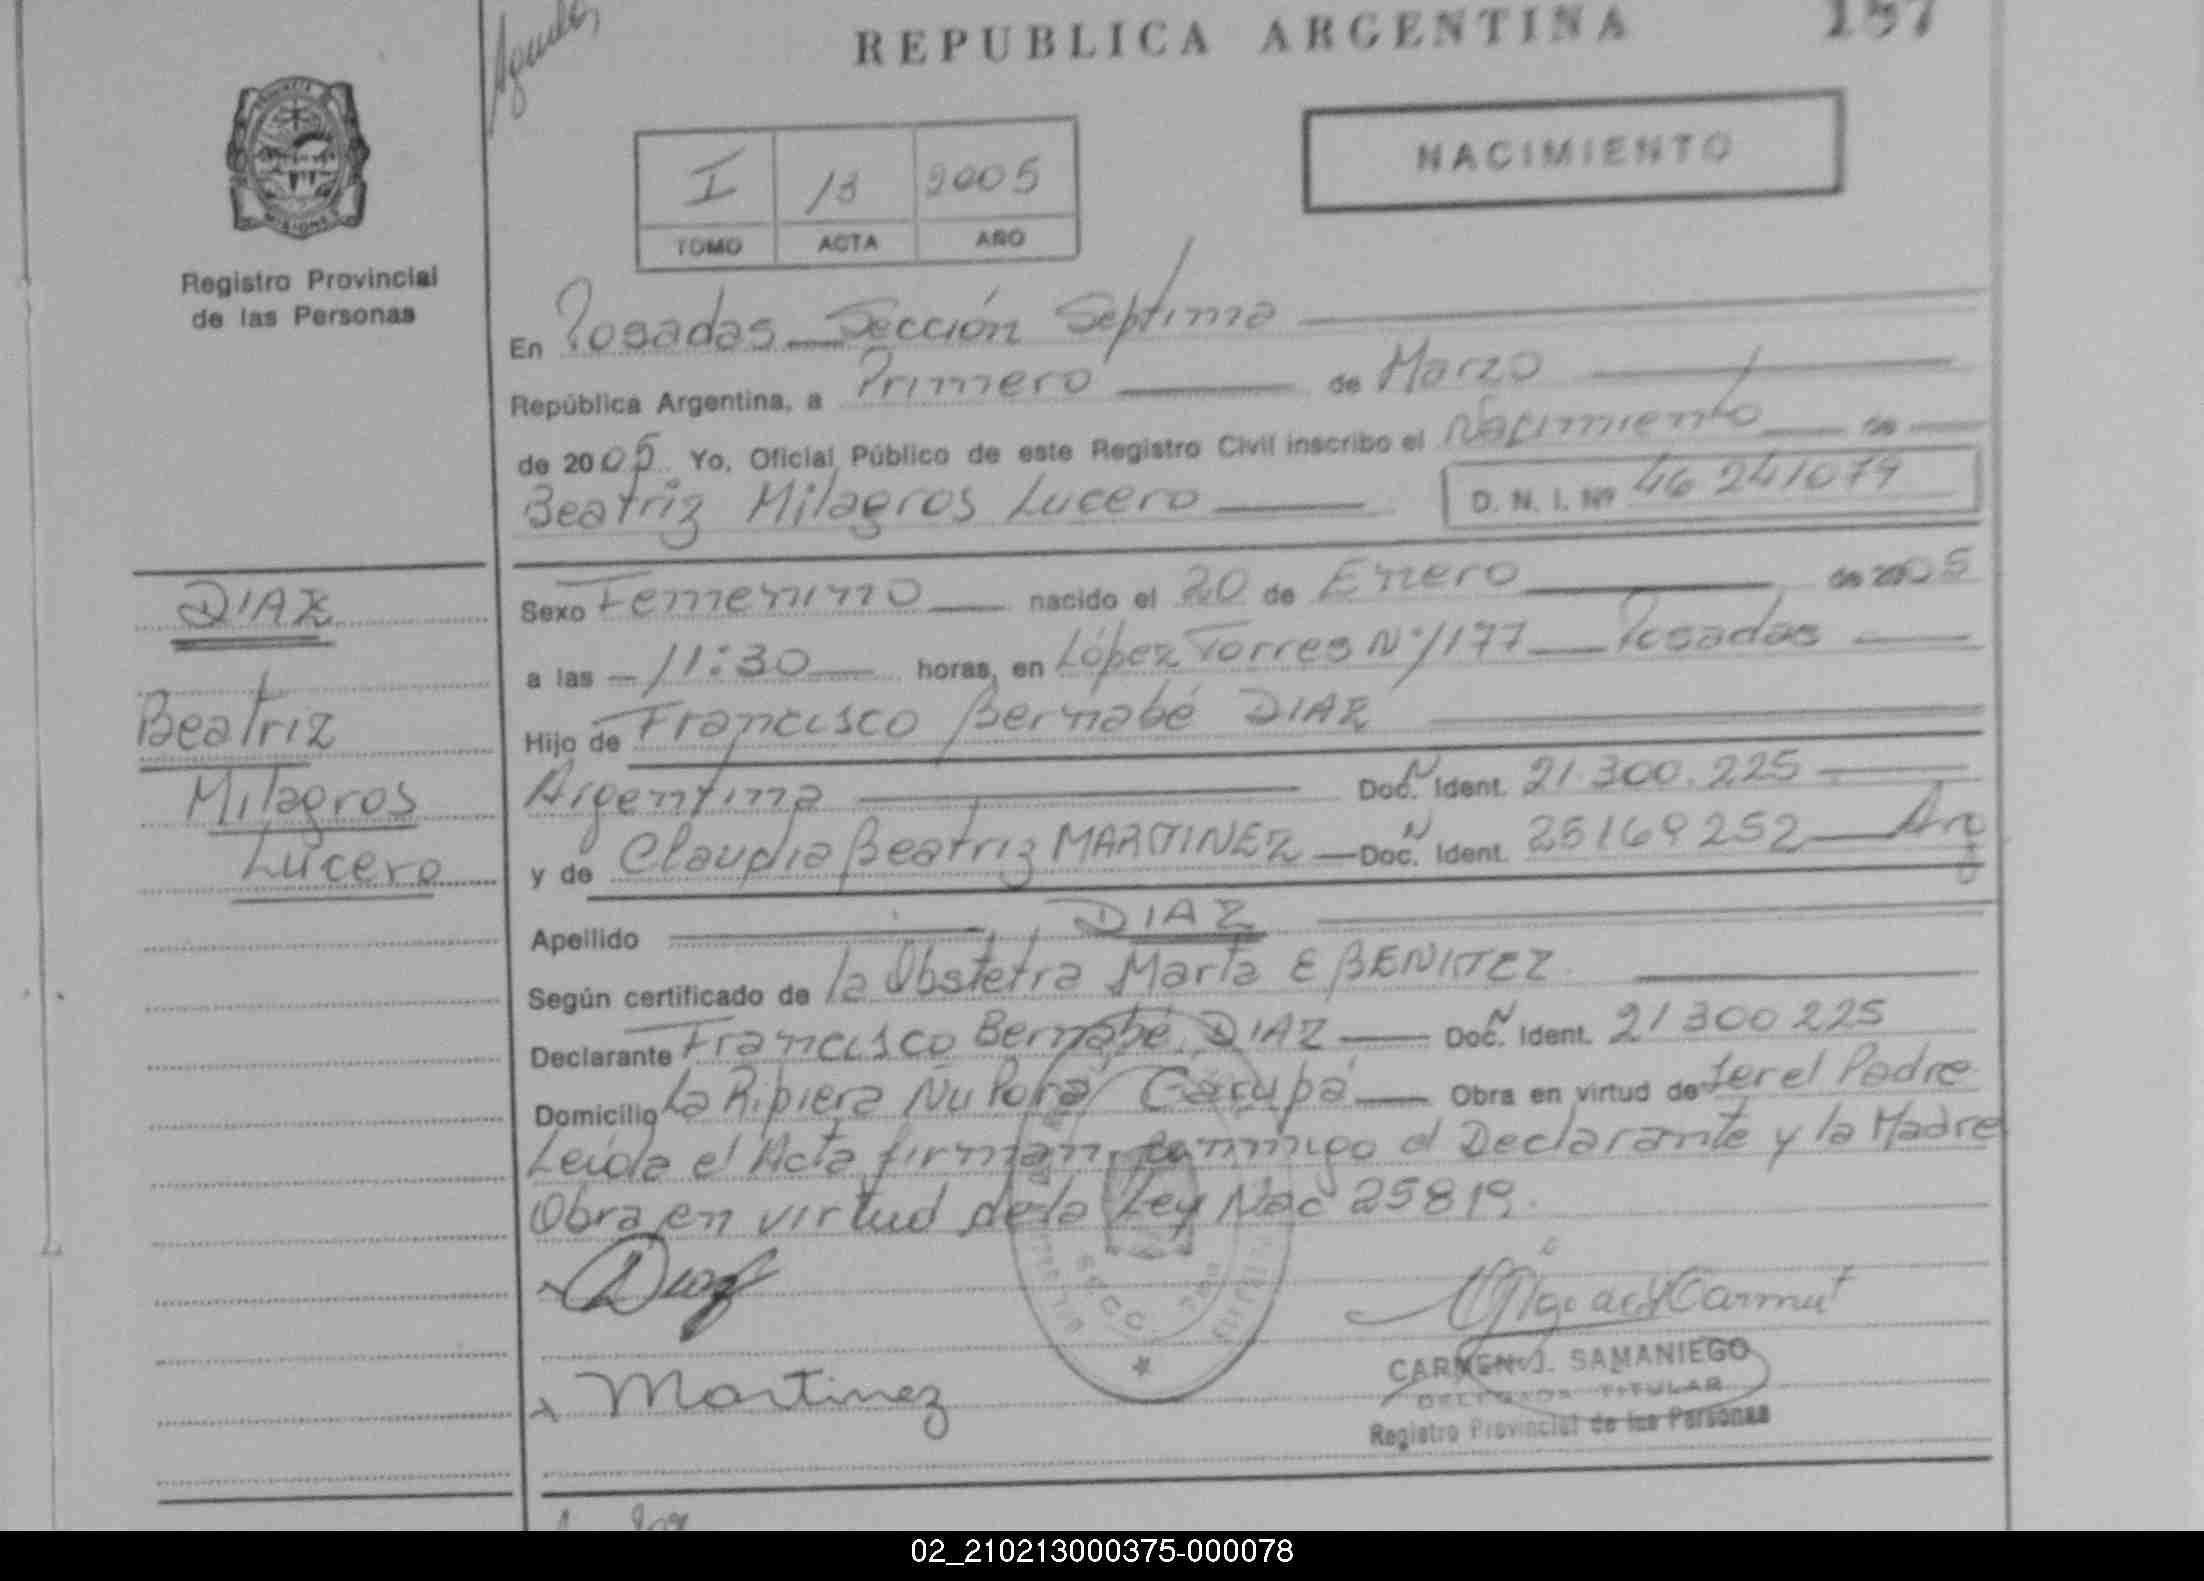 REPUBLICA ARGENTINA
157
NACIMIENTO
I 13 2005
TOMO ACTA AÑO
Registro Provincial
de las Personas
En Posadas Sección Septima
República Argentina, a Primero de Marzo
de 2005 Yo, Oficial Público de este Registro Civil inscribo el Nacimiento de
Beatriz Milagros Lucero D. N. I. Nº 46 241079
DIAZ
Beatriz
Milagros
Lucero
Sexo Femenino nacido el 20 de Enero de 2005
a las 11:30 horas, en López Torres Nº 1177 Posadas
Hijo de Francisco Bernabé DIAZ
Argentina Doc. N Ident. 21.300.225
y de Claudia Beatriz MARTINEZ Doc. N Ident. 25169252 Arg
Apellido DIAZ
Según certificado de la Obstetra Marta E BENITEZ
Declarante Francisco Bernabé DIAZ Doc. N Ident. 21300225
Domicilio La Ripiera Ñu Pora Garupá Obra en virtud de ser el Padre
Leida el Acta firman conmigo el Declarante y la Madre
Obra en virtud de la Ley Nac 25819.
Diaz
Martinez
CARMEN J. SAMANIEGO
DELEGADA TITULAR
Registro Provincial de las Personas
02_210213000375-000078